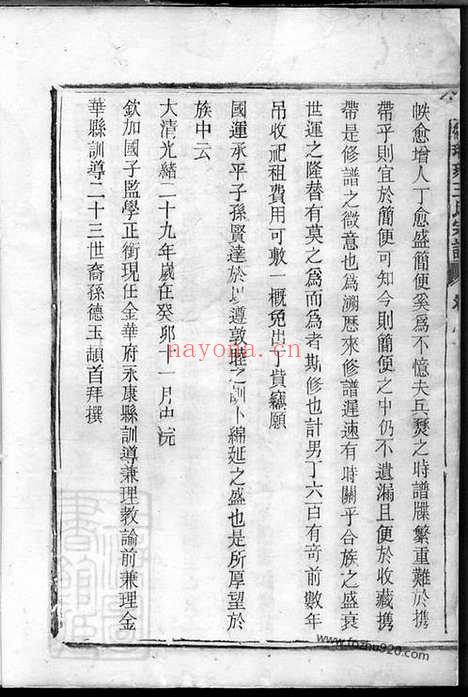 帙愈增人丁愈盛簡便奚爲不憶夫兵燹之時譜牒繁重難於携
帶平則宜於簡便可知今則簡便之中仍不遺漏且便於收藏携
帶是修譜之微意也爲溯歷來修譜遲速有時關乎合族之盛衰
世運之隆替有莫之爲而爲者斯修也計男丁六百有奇前數年
吊收祀租費用可敷一概免出丁費竊願
國運承平子孫賢達於以遵敦睦之訓卜綿延之盛也是所厚望於
族中云
大清光緒二十九年歲在癸卯十一月中浣
欽加國子監學正銜現任金華府永康縣訓導兼理教諭前兼理金
華縣訓導二十三世裔孫德玉頓首拜撰
王氏宗譜
nayona.cn
www.fozhu920.com